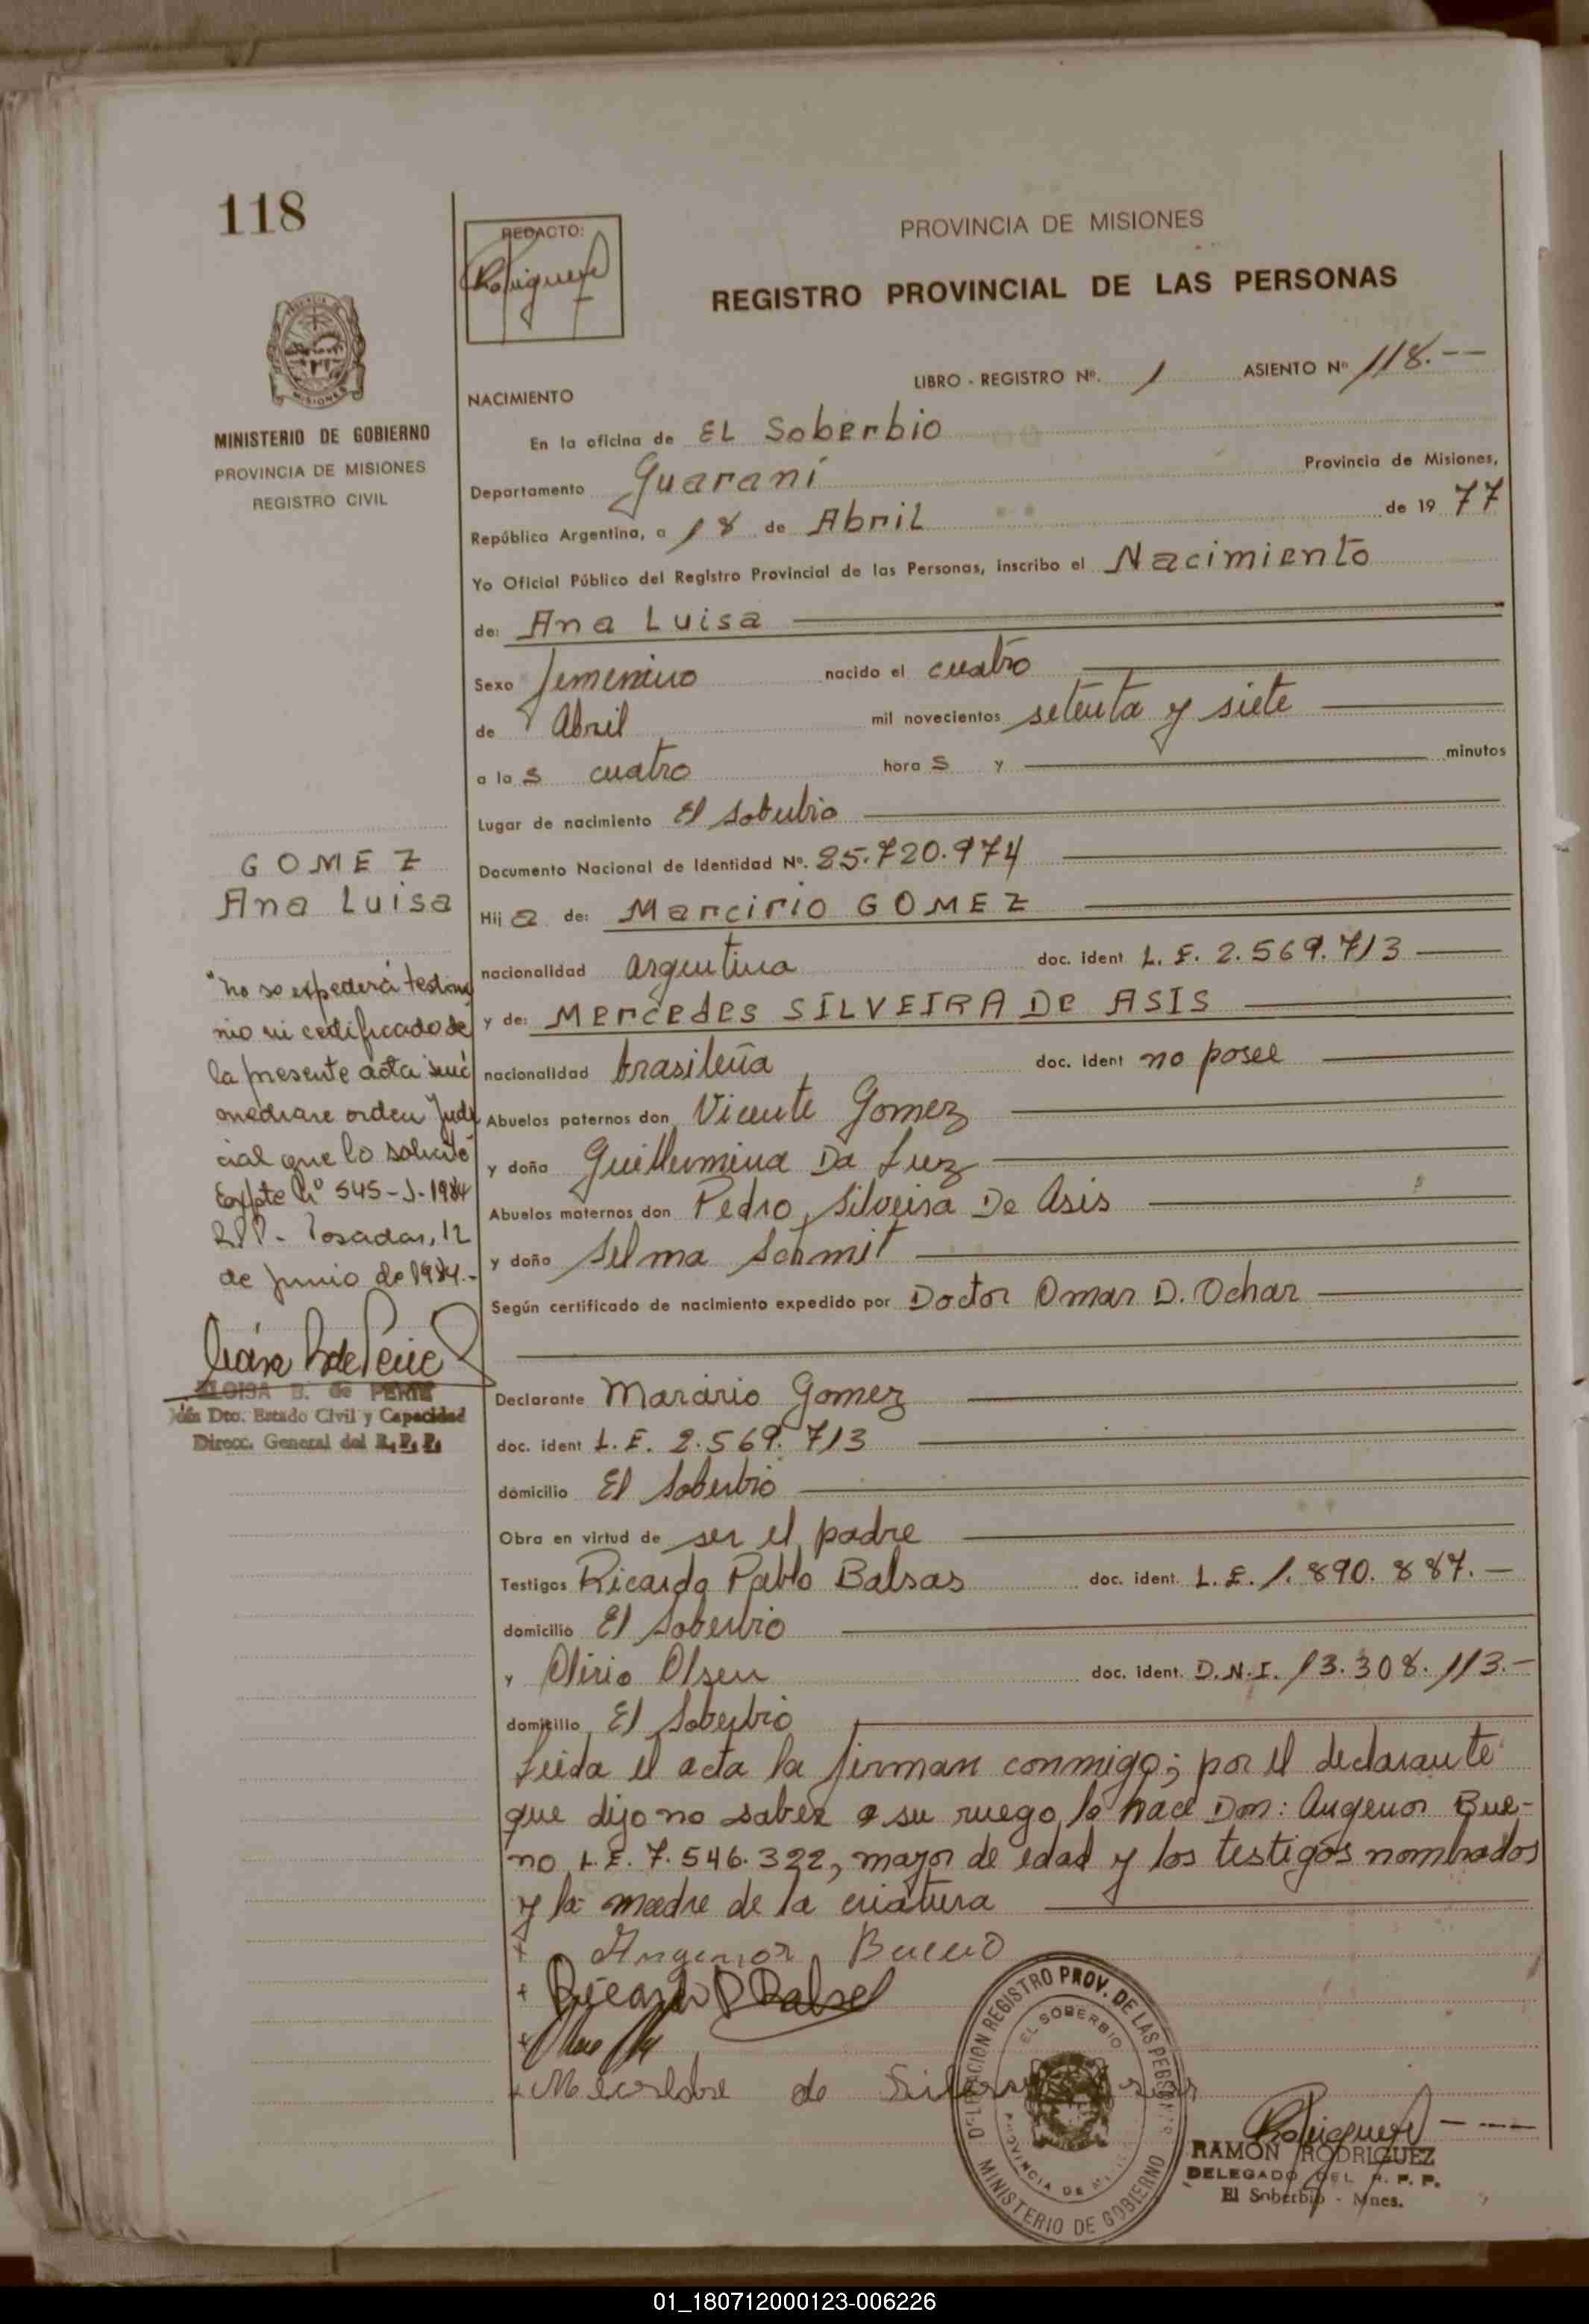 118
REDACTO:
PROVINCIA DE MISIONES
REGISTRO PROVINCIAL DE LAS PERSONAS
MINISTERIO DE GOBIERNO
PROVINCIA DE MISIONES
REGISTRO CIVIL
LIBRO - REGISTRO Nº. 1 ASIENTO Nº 118.--
NACIMIENTO
En la oficina de EL Soberbio
Departamento Guaraní Provincia de Misiones,
República Argentina, a 18 de Abril de 1977
Yo Oficial Público del Registro Provincial de las Personas, inscribo el Nacimiento
de: Ana Luisa
Sexo femenino nacido el cuatro
de Abril mil novecientos setenta y siete
a las cuatro horas y minutos
Lugar de nacimiento El Soberbio
Documento Nacional de Identidad Nº. 25.720.974
Hija de: Marcirio GOMEZ
nacionalidad argentina doc. ident L. E. 2.569.713
y de: Mercedes SILVEIRA DE ASIS
nacionalidad brasileña doc. ident no posee
Abuelos paternos don Vicente Gomez
y doña Guillermina Da Luz
Abuelos maternos don Pedro Silveira De Asis
y doña Selma Schmit
Según certificado de nacimiento expedido por Doctor Omar D. Ochar
Declarante Marcirio Gomez
doc. ident L. E. 2.569.713
domicilio El Soberbio
Obra en virtud de ser el padre
Testigos Ricardo Pablo Balsas doc. ident. L. E. 1.890.887.-
domicilio El Soberbio
y Olirio Olsen doc. ident. D.N.I. 13.308.113.-
domicilio El Soberbio
Leida el acta la firman conmigo; por el declarante
que dijo no saber a su ruego lo hace Don: Angenor Bue-
no L.E. 7.546.322, mayor de edad y los testigos nombrados
y la madre de la criatura
Angenor Bueno
GOMEZ
Ana Luisa
"no se expederá testimo
nio ni certificado de
la presente acta sinó
mediare orden Judi
cial que lo solicite"
Expte Nº 545-J-1984
R.P.P.- Posadas, 12
de Junio de 1984.-
ELOISA B. de PERIE
Jefa Dto. Estado Civil y Capacidad
Direcc. General del R. P. P.
DELEGACION REGISTRO PROV. DE LAS PERSONAS
EL SOBERBIO
PROVINCIA DE
MINISTERIO DE GOBIERNO
RAMON RODRIGUEZ
DELEGADO DEL R. P. P.
El Soberbio - Mnes.
01_180712000123-006226